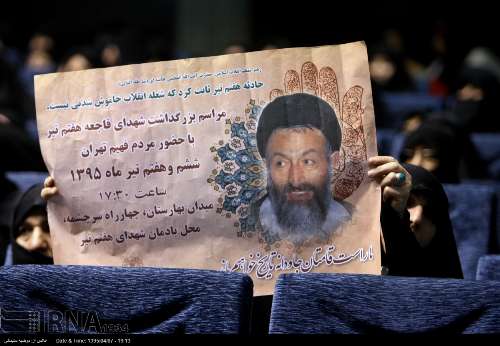 حادثه هفتم تیر ثابت کرد که شعله انقلاب خاموش شدنی نیست.
مراسم بزرگداشت شهدای فاجعه هفتم تیر
با حضور مردم فهیم تهران
ششم و هفتم تیر ماه ۱۳۹۵
ساعت ۱۷:۳۰
میدان بهارستان، چهارراه سرچشمه،
محل یادمان شهدای هفتم تیر
راست قامتان جاودانه تاریخ خواهیم
IRNA
Date & Time: 1395/04/07 - 19:13